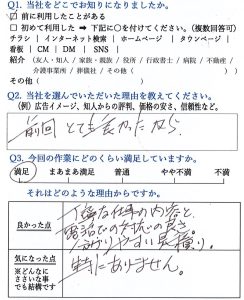 Q1. 当社をどこでお知りになりましたか。
☑ 前に利用したことがある
□ 初めて利用した ⇒ 下記に○を付けてください。(複数回答可)
チラシ | インターネット検索 | ホームページ | タウンページ
看板 | CM | DM | SNS |
紹介 (友人・知人/家族・親族/役所/行政書士/病院/不動産/
介護事業所/葬儀社/その他( )
その他( )
Q2. 当社を選んでいただいた理由を教えてください。
(例) 広告イメージ、知人からの評判、価格の安さ、信頼性など。
前回とても良かったから、
Q3. 今回の作業にどのくらい満足していますか。
満足 まあまあ満足 普通 やや不満 不満
それはどのような理由からですか。
良かった点
丁寧な仕事の内容と、
電話での対応の良さ。
分りやすい見積り。
気になった点
※どんなに
ささいな事
でも結構です
特にありません。